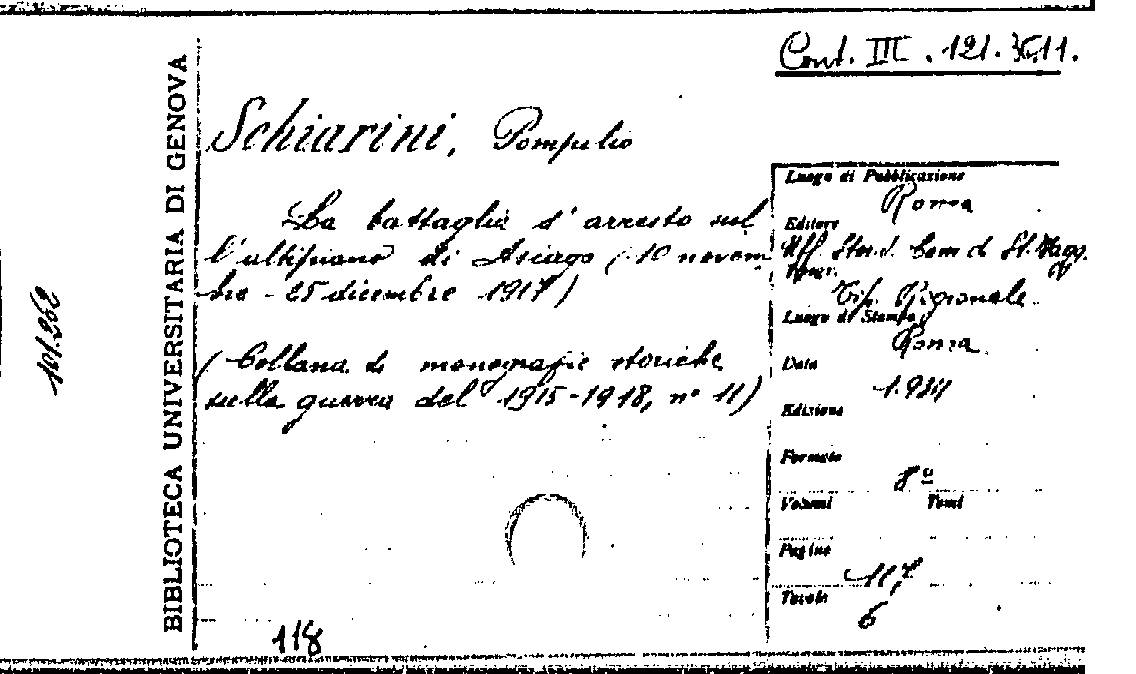 Cont. III . 121. 36.11.
BIBLIOTECA UNIVERSITARIA DI GENOVA
101.262
Schiarini, Pompilio
La battaglia d'arresto sul
l'altipiano di Asiago (10 novem
bre - 25 dicembre 1917)
(Collana di monografie storiche
sulla guerra del 1915-1918, n° 11)
118
Luogo di Pubblicazione
Roma
Editore
Uff. Stor. d. Com d St. Magg.
Tip. Regionale
Luogo di Stampa
Roma
Data
1934
Edizione
Formato
8°
Volumi Tomi
Pagine
117
Tavole
6